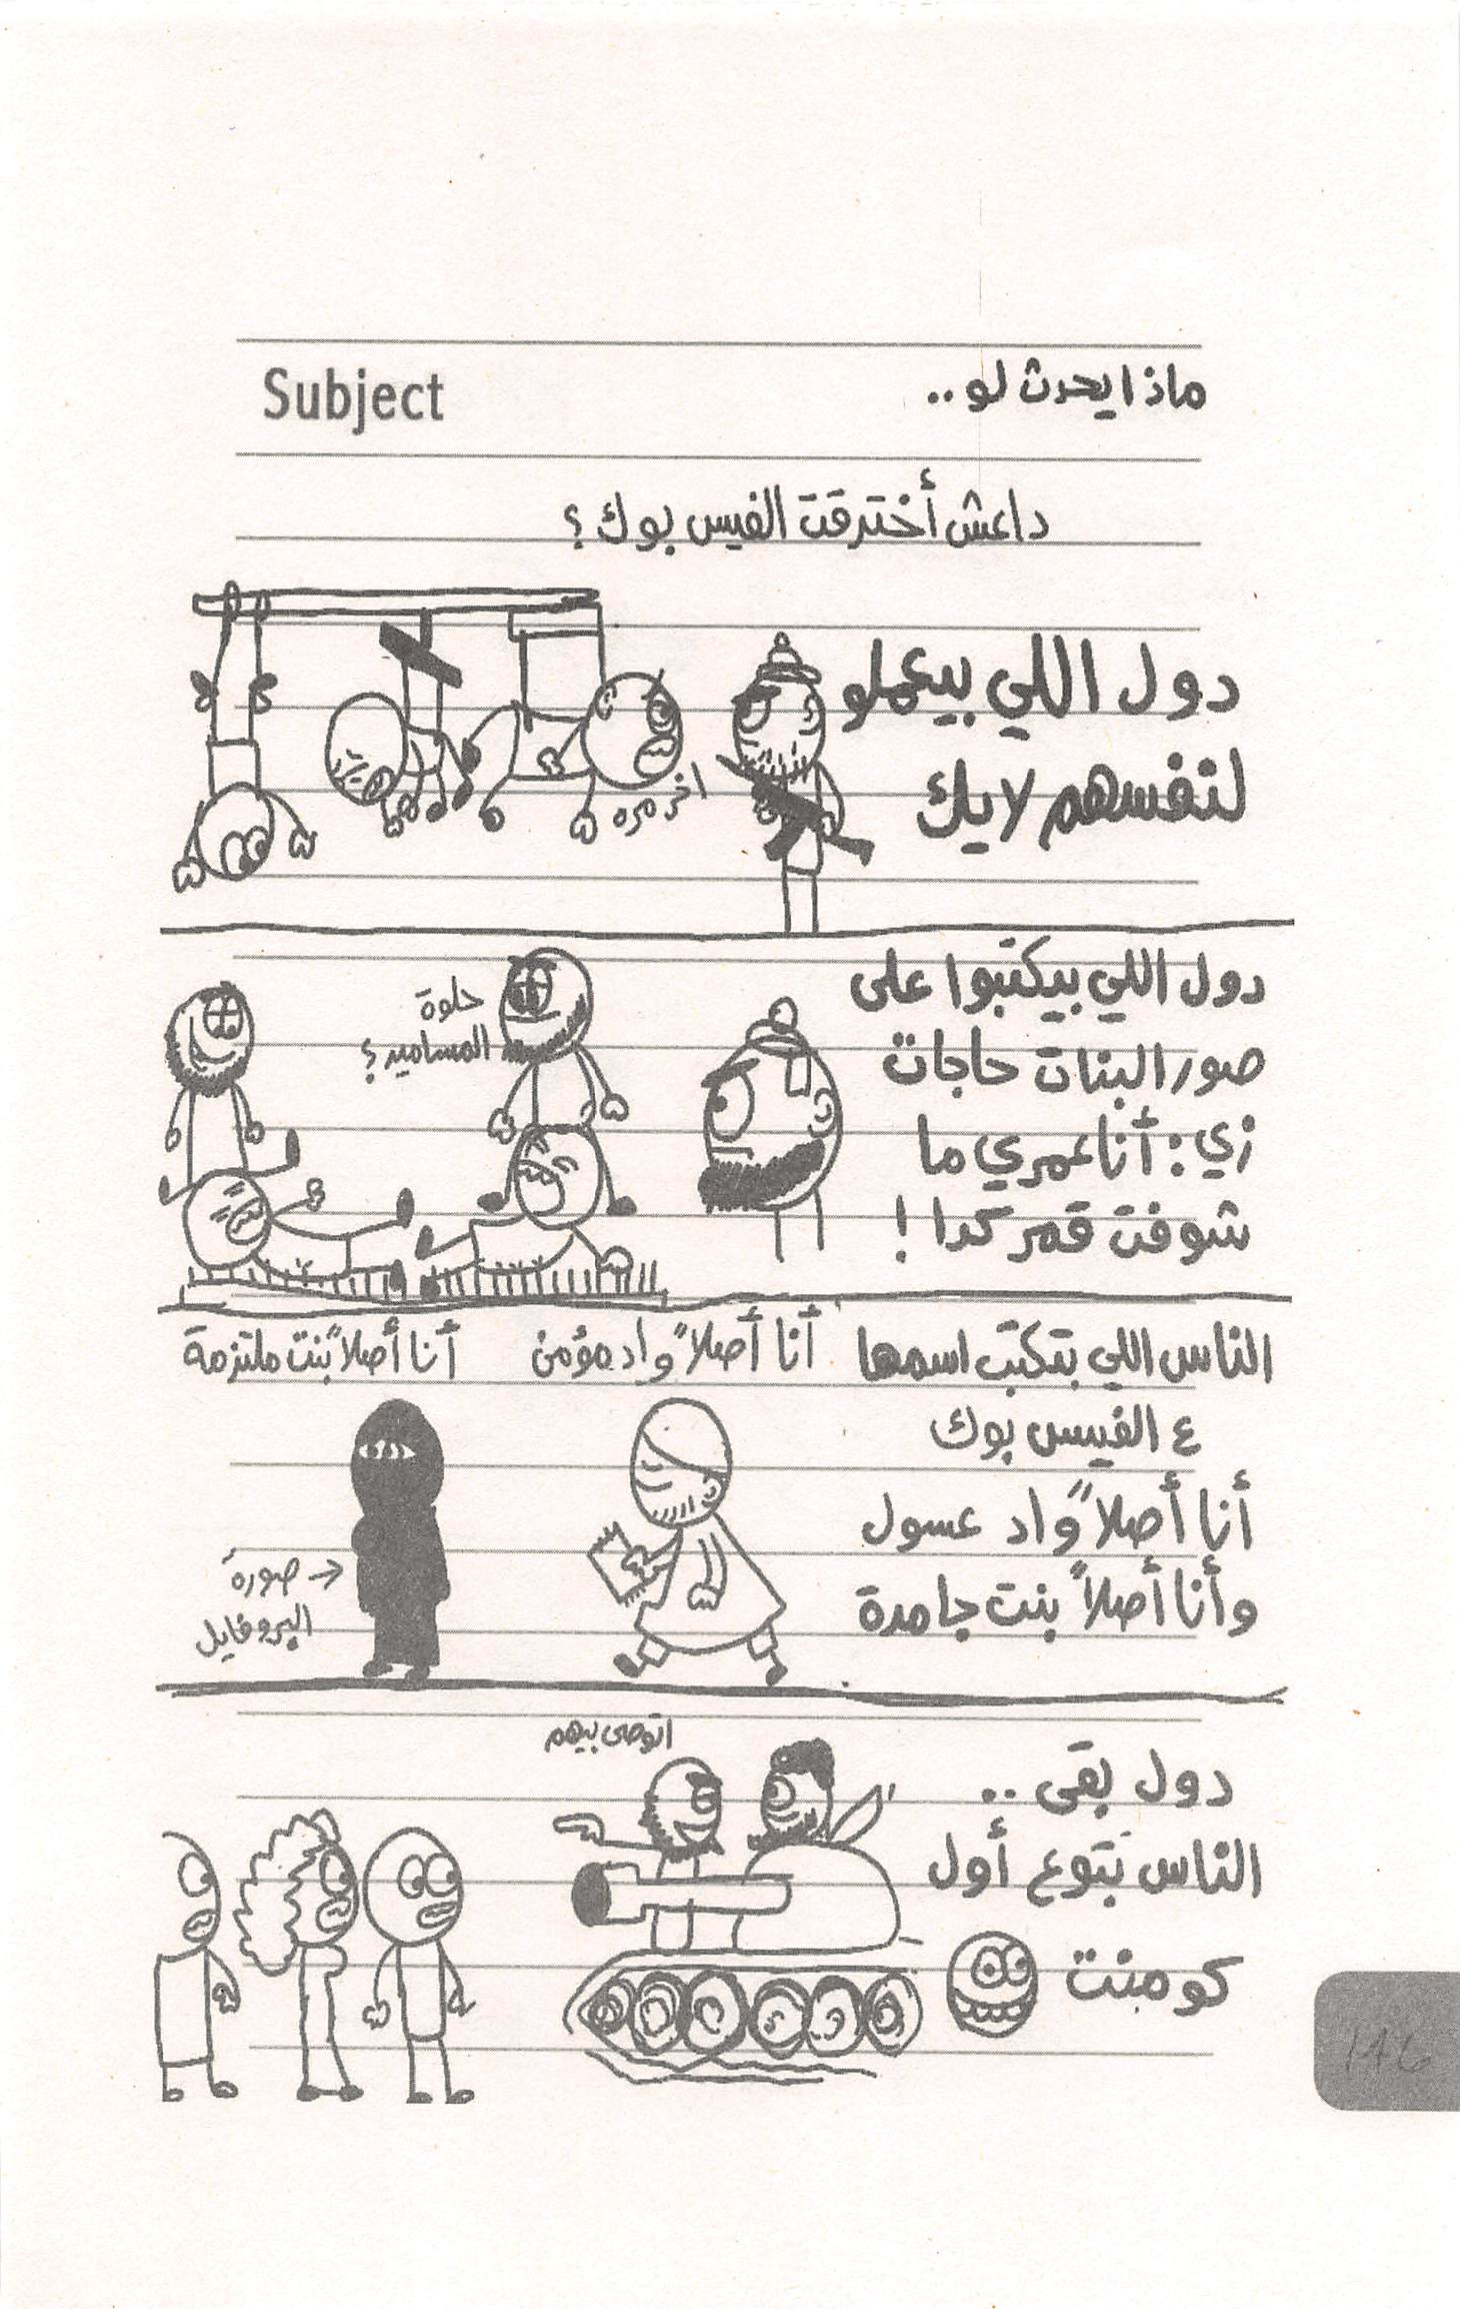 Subject
ماذا يحدث لو..
داعش أخترقت الفيس بوك؟
دول اللي بيعملو
لنفسهم لايك
اخر مره
دول اللي بيكتبوا على
صور البنات حاجات
زي: أنا عمري ما
شوفت قمر كدا!
حلوة
المسامير؟
الناس اللي بتكتب اسمها
ع الفيس بوك
أنا أصلاً واد عسول
وأنا أصلاً بنت جامدة
أنا أصلاً واد مؤمن
أنا أصلاً بنت ملتزمة
صورة
البروفايل
دول بقى..
الناس بتوع أول
كومنت
اتوصى بيهم
146